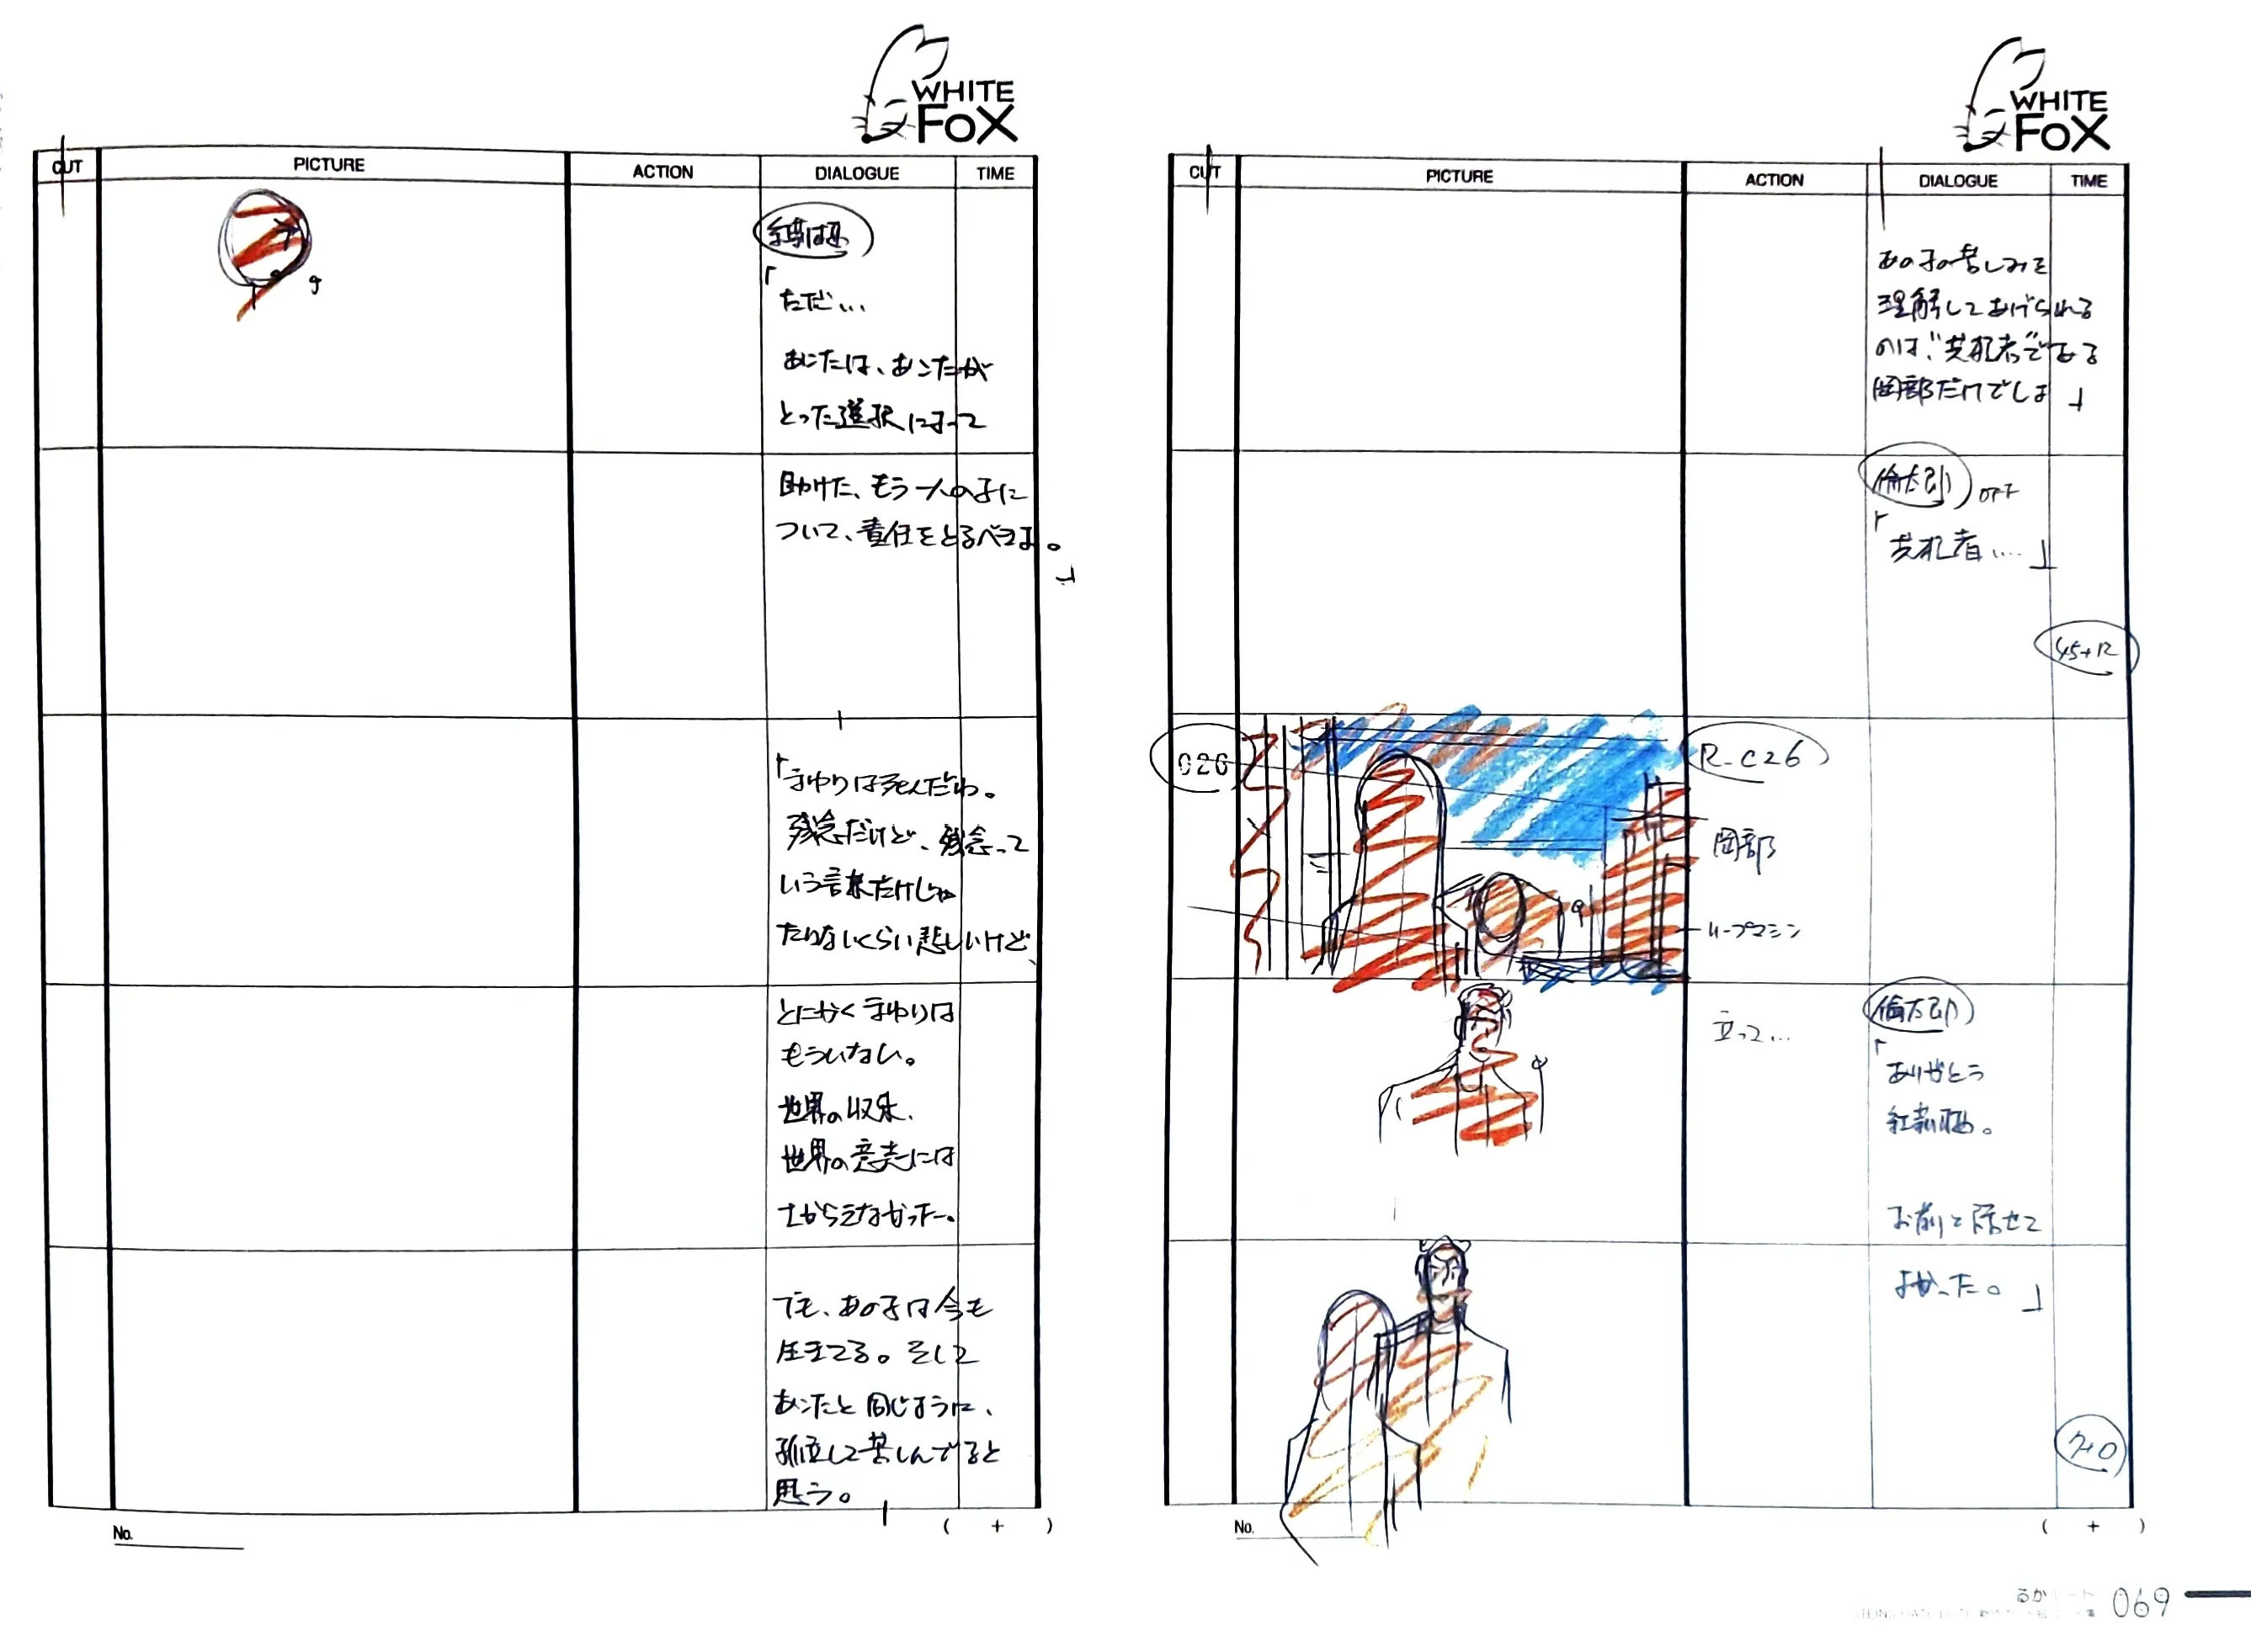 WHITE
FOX
CUT
PICTURE
ACTION
DIALOGUE
TIME
紅莉栖
「ただ…
あんたは、あんたが
とった選択によって
助けた、もう一人の子に
ついて、責任をとるべきよ。」
「まゆりは死んだわ。
残念だけど、残念って
いう言葉だけじゃ
たりないくらい悲しいけど、
とにかくまゆりは
もういない。
世界の収束、
世界の意志には
さからえなかった。
でも、あの子は今も
生きてる。そして
あんたと同じように、
孤立して苦しんでると
思う。
No.
( + )
WHITE
FOX
CUT
PICTURE
ACTION
DIALOGUE
TIME
あの子の苦しみを
理解してあげられる
のは、共犯者である
岡部だけでしょ」
倫太郎 OFF
「共犯者….」
45+12
026
R_C26
岡部
リープマシン
立って…
倫太郎
「ありがとう
紅莉栖。
お前と話せて
よかった。」
7+0
No.
( + )
るかルート
069